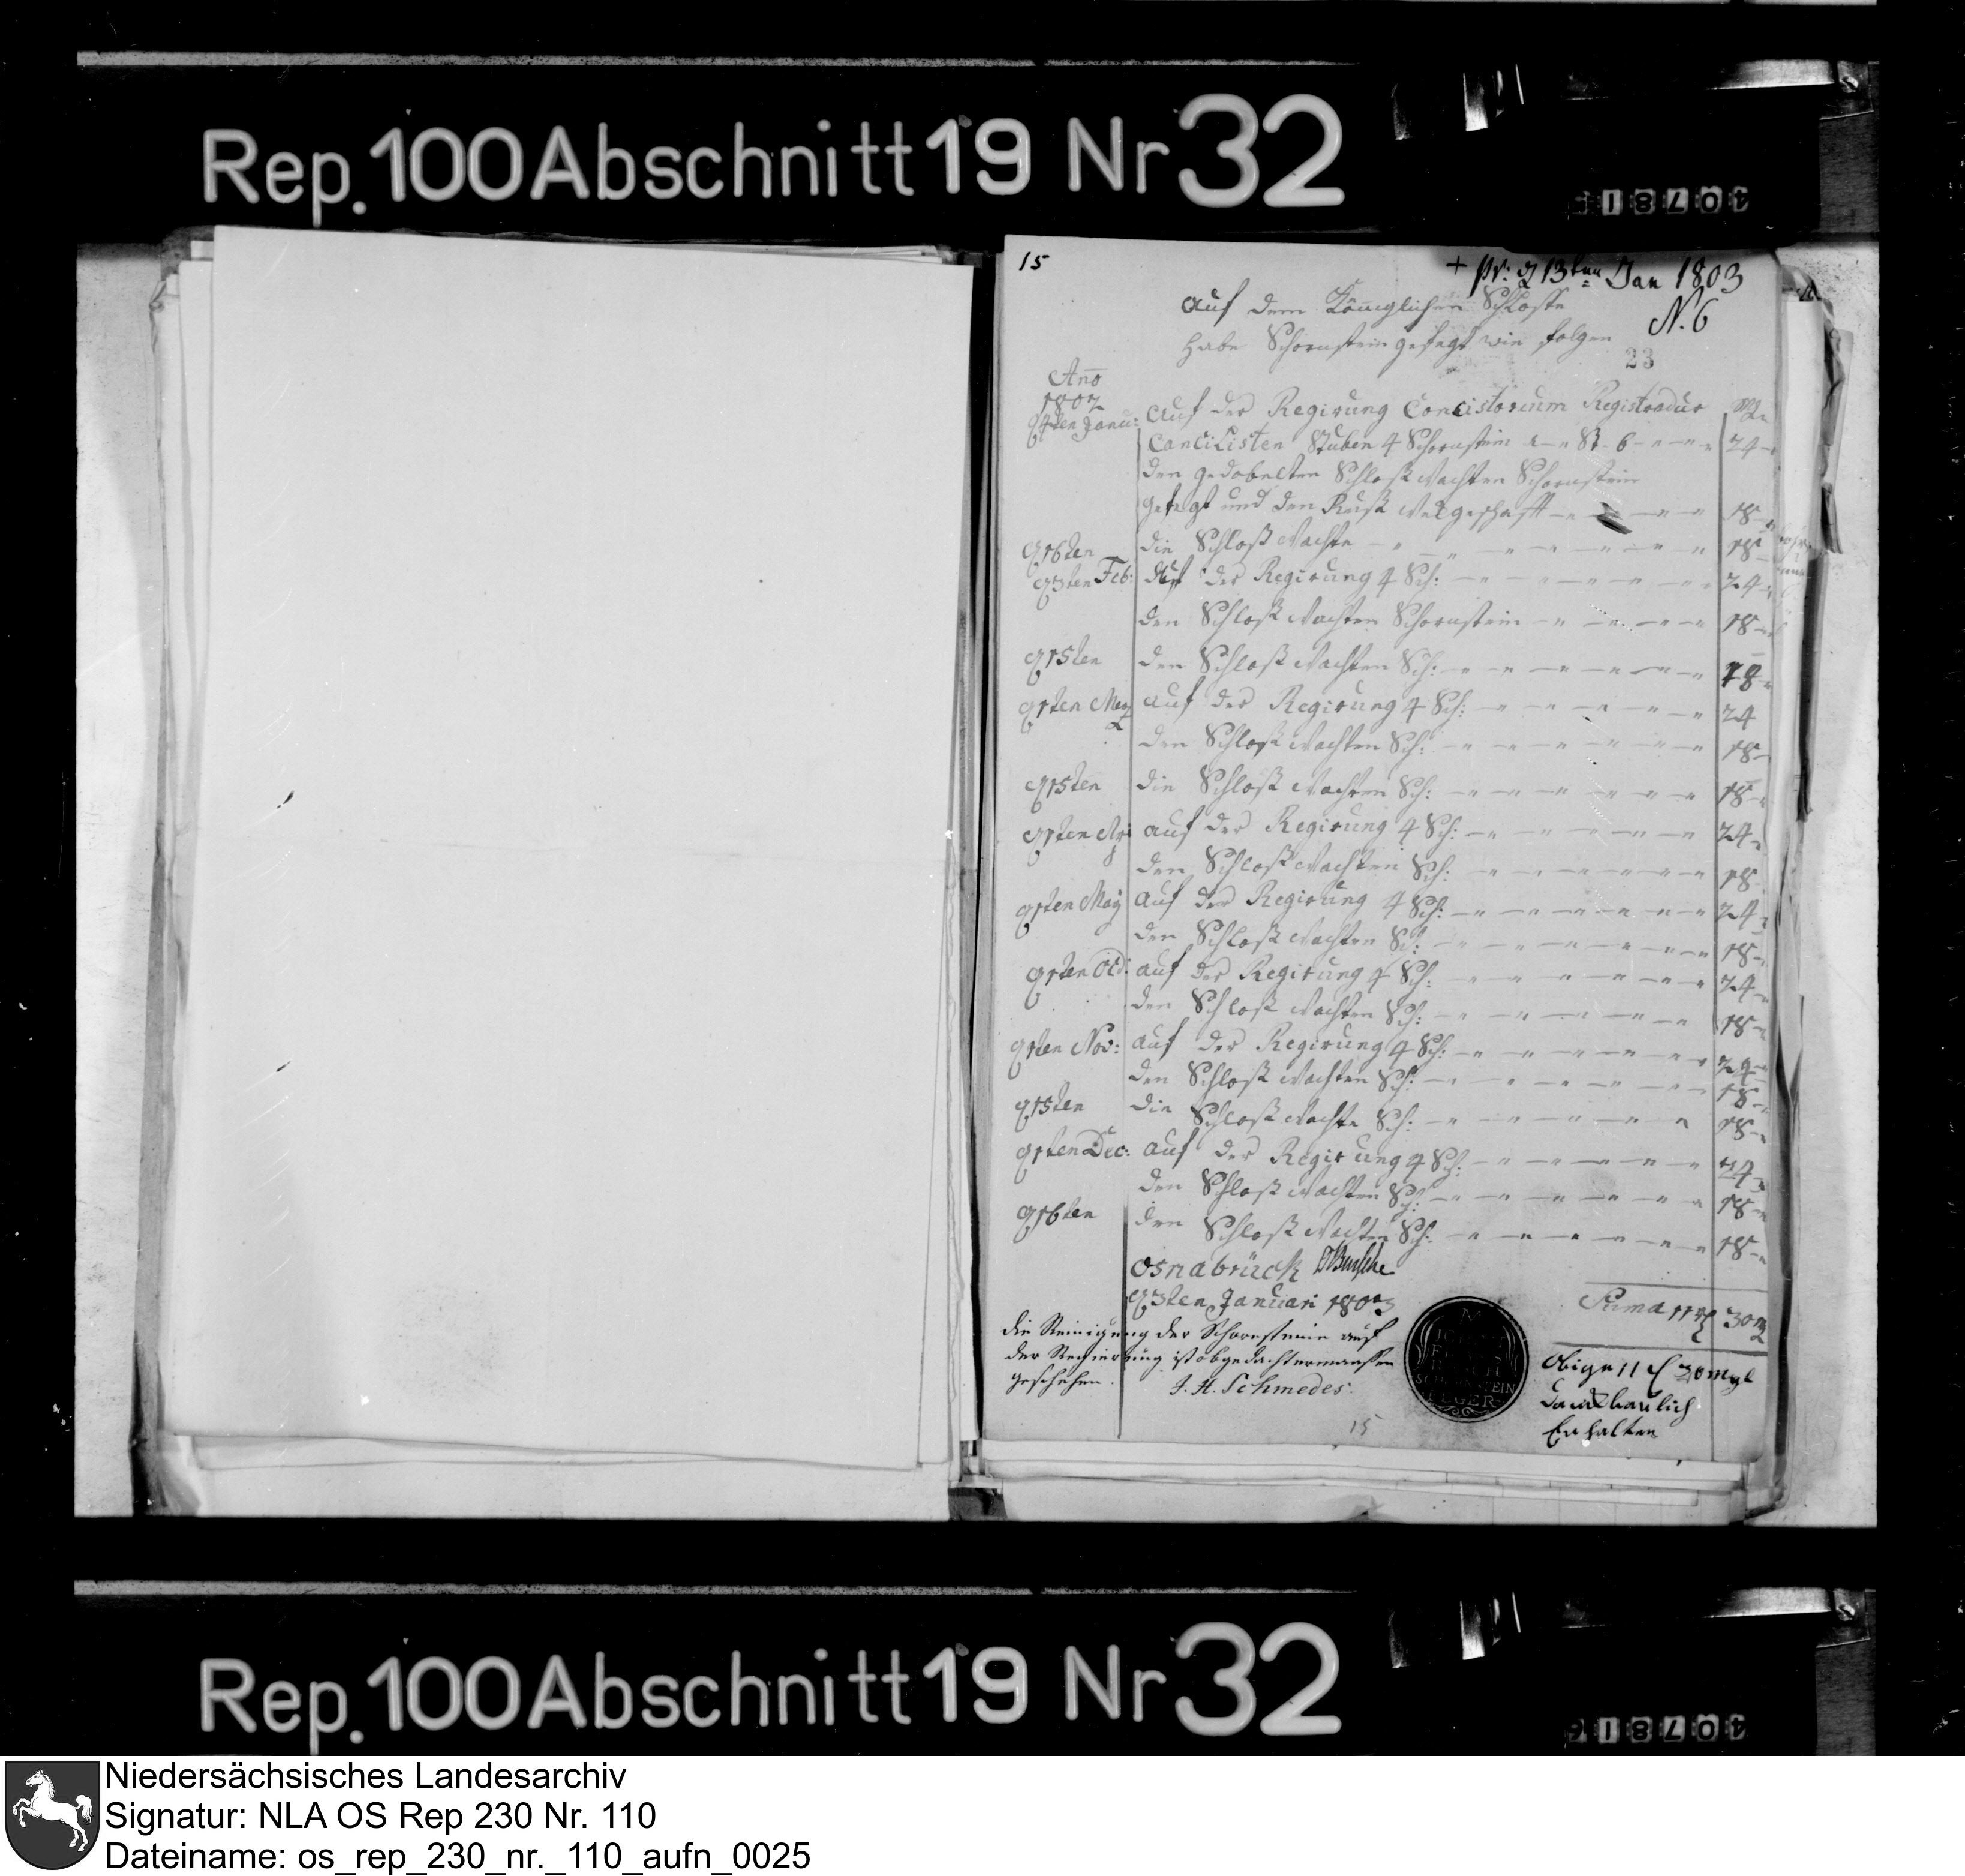 Rep. 100 Abschnitt 19 Nr 32
40781
15
+ pr: d 13ten Jan 1803
N. 6
auf dem Königlichen Schlosse
habe Schornstein gefegt wie folgen
23
Año
1802
d 4ten Janu: auf der Regirung Concistorium Registradur
Cancilisten Stuben 4 Schornstein St 6 24
den gedobelten Schloß Wachten Schornstein
gefegt und den Ruß wed geschafft 18
d 16ten die Schloß Wachte 18
d 3ten Feb: Auf der Regirung 4 Sch: 24
den Schloß Wachten Schornstein 18
d 15ten den Schloß Wachten Sch: 18
d 1ten Merz auf der Regirung 4 Sch: 24
den Schloß Wachten Sch: 18
d 15ten die Schloß Wachten Sch: 18
d 1ten Apr auf der Regirung 4 Sch: 24
den Schloß Wachten Sch: 18
d 1ten May auf der Regirung 4 Sch: 24
den Schloß Wachten Sch: 18
d 1ten Octd: auf der Regirung 4 Sch: 24
den Schloß Wachten Sch: 18
d 1ten Nov: auf der Regirung 4 Sch: 24
den Schloß Wachten Sch: 18
d 15ten die Schloß Wachte Sch: 18
d 1ten Dec: auf der Regirung 4 Sch: 24
den Schloß Wachten Sch: 18
d 16ten den Schloß Wachten Sch: 18
osnabrück DBusche
d 3ten Januari 1803
Suma 11 30
die Reinigung der Schornsteine auf
der Regierung ist obgedachtermaassen
geschehen.
J. H. Schmedes.
SCHORNSTEIN
FEGER
obige 11 30 mgl
Danckbarlich
Erhalten
15
Rep. 100 Abschnitt 19 Nr 32
40781
Niedersächsisches Landesarchiv
Signatur: NLA OS Rep 230 Nr. 110
Dateiname: os_rep_230_nr._110_aufn_0025